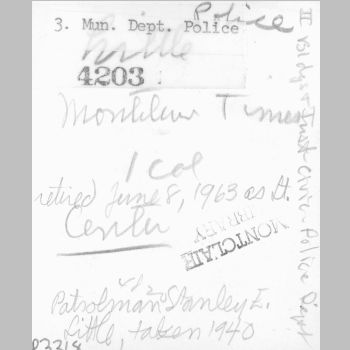 Police
3. Mun. Dept. Police
Little
4203
Montclair Times
1 col
retired June 8, 1963 as Lt.
Center
MONTCLAIR
LIBRARY
Patrolman Stanley E.
Little, taken 1940
II
Inst - Civic - Police Dept